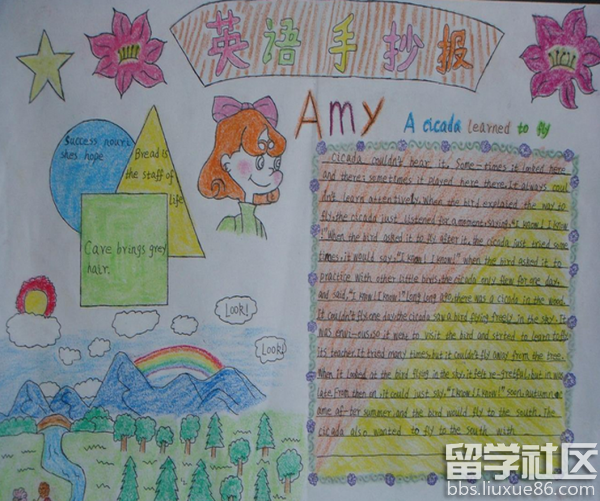 英语手抄报
Amy
A cicada learned to fly
Success nouri
shes hope
Bread is
the staff of
life
Care brings grey
hair.
LOOK!
LOOK!
cicada couldn't bear it. Some-times it looked here
and there, sometimes it played here there. It always coul
dn't learn attentively. When the bird explained the way to
fly, the cicada just listened for a moment, saying, "I know! I know
!" When the bird asked it to fly after it, the cicada just tried some
times. it would say, "I know! I know!" when the bird asked it to
practice with other little birds, the cicada only flew for one day.
and said, "I know! I know!" long, long ago, there was a cicada in the wood.
It couldn't fly. one day, the cicada saw a bird flying freely in the sky. It
was envi-ous. so it went to visit the bird and strted to learn to fly
its teacher. It tried many times, but it couldn't fly away from the tree.
When it looked at the bird flying in the sky, it felt re-gretful, but it was
late. From then on, it could just say, "I know! I know!" soon, autumn c
ame af-ter summer and the bird would fly to the south. The
cicada also wanted to fly to the south with
留学社区
bbs.liuxue86.com